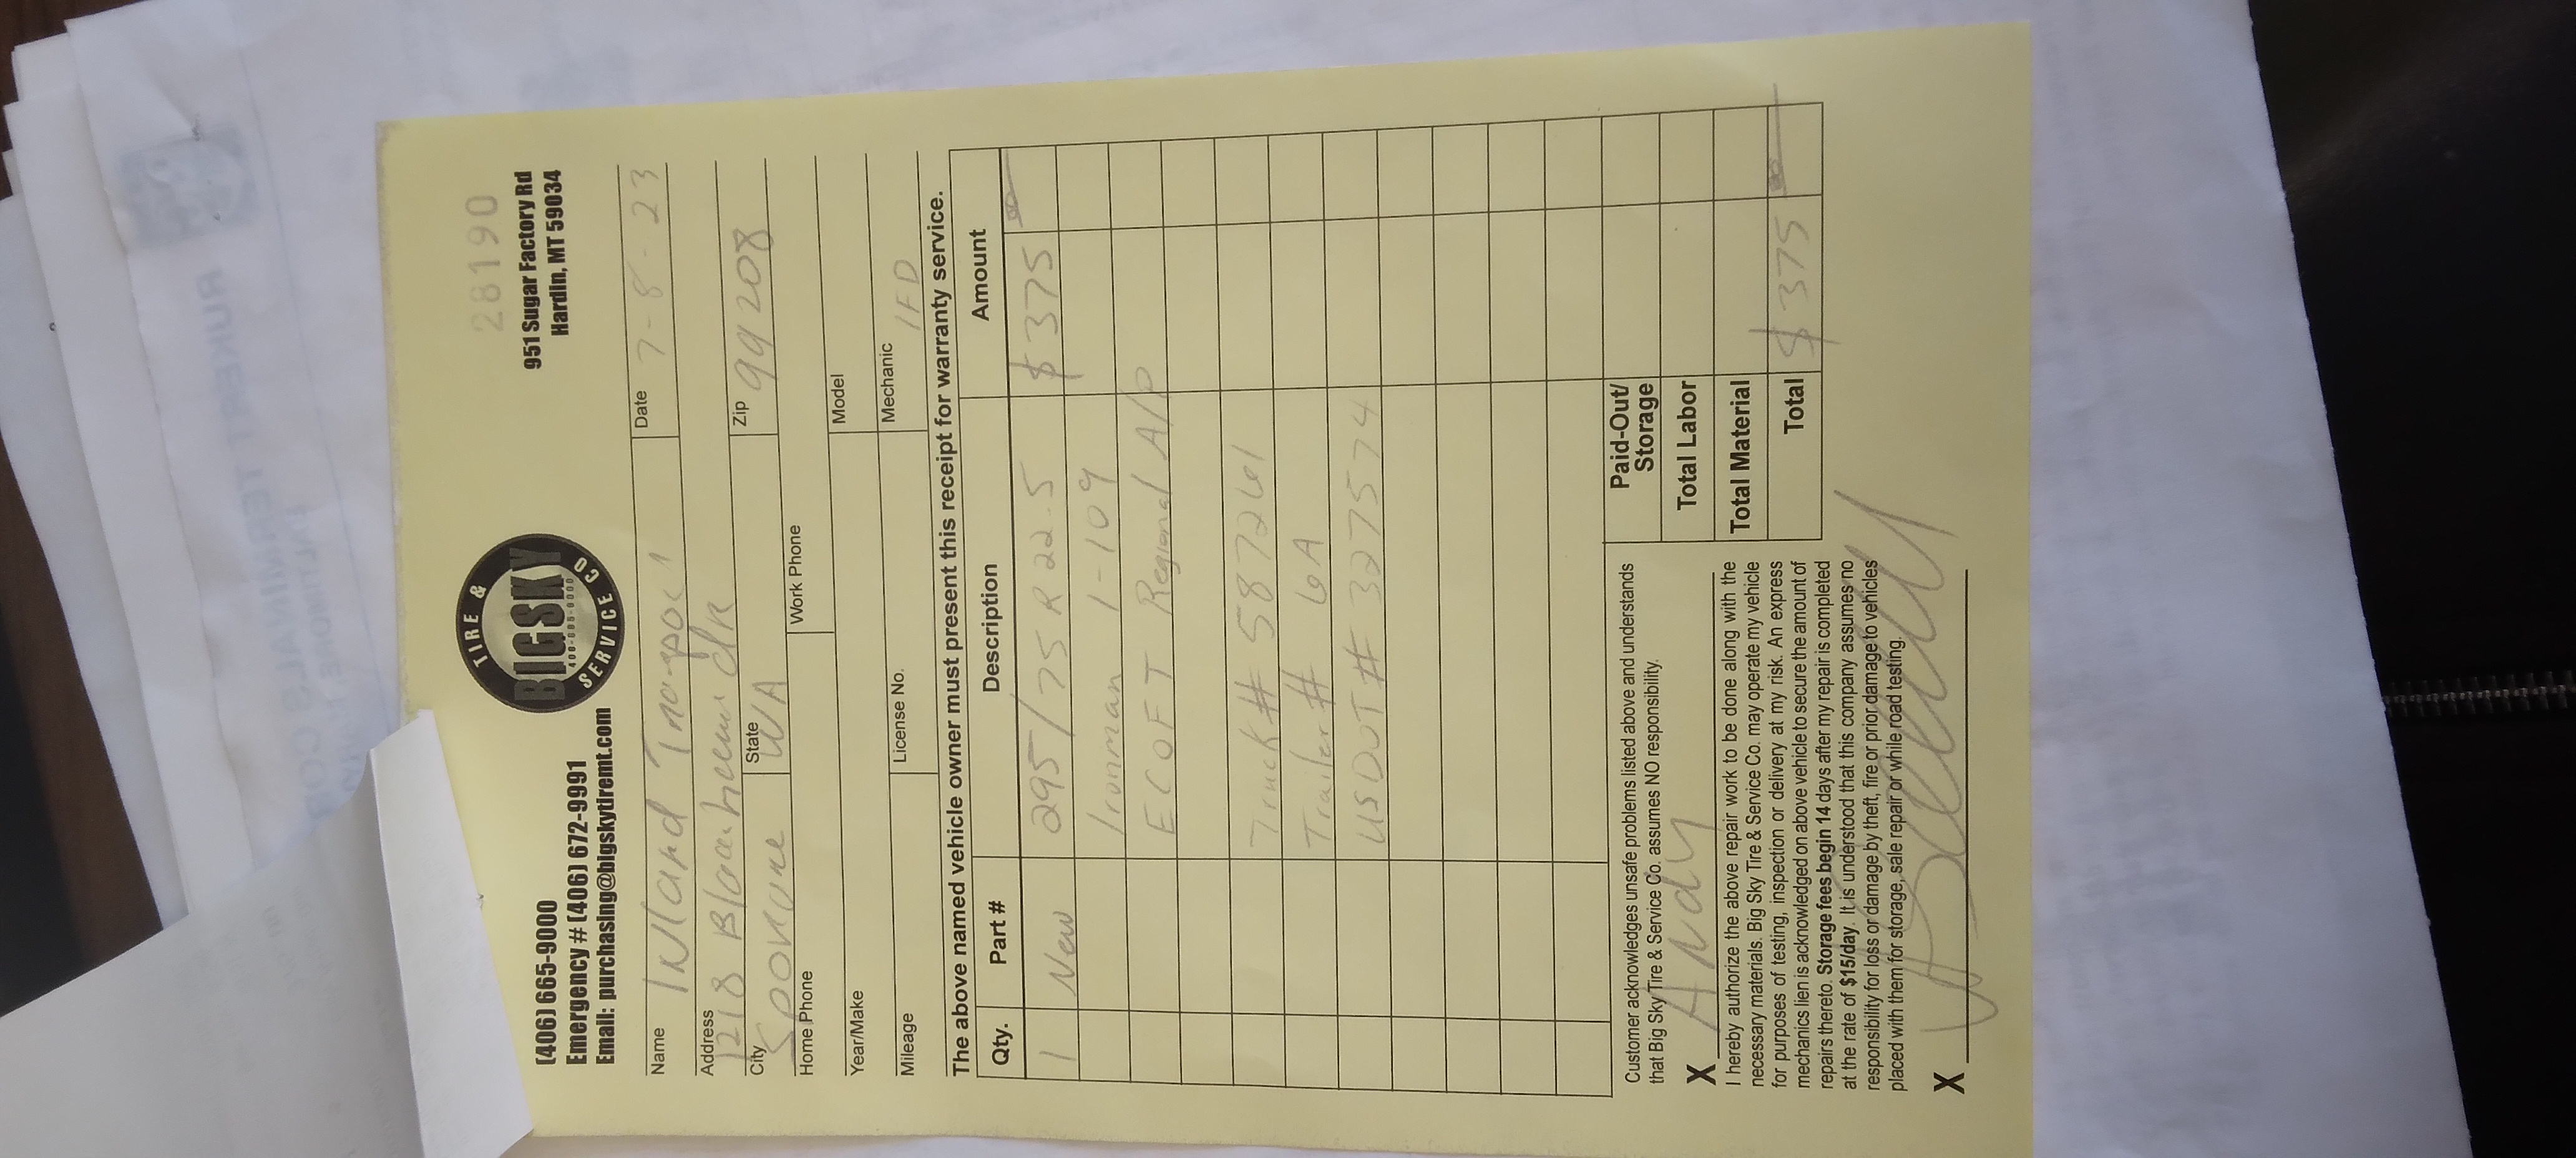 RUKERT TERMINALS COR
BALTIMORE, MARY
TIRE &
BIGSKY
406-665-9000
SERVICE CO
28190
(406) 665-9000
951 Sugar Factory Rd
Emergency # (406) 672-9991
Hardin, MT 59034
Email: purchasing@bigskytiremt.com
Name Inland
Date 7-8-23
Address 1218 dR
City Spokane State WA Zip 99208
Home Phone Work Phone
Year/Make Model
Mileage License No. Mechanic IFD
The above named vehicle owner must present this receipt for warranty service.
Qty. Part # Description Amount
1 New 295/75 R 22.5 $375 00
Ironman I-109
ECOFT Regional A/P
Truck # 587261
Trailer # 6A
USDOT # 327574
Customer acknowledges unsafe problems listed above and understands
that Big Sky Tire & Service Co. assumes NO responsibility.
X Andy
I hereby authorize the above repair work to be done along with the
necessary materials. Big Sky Tire & Service Co. may operate my vehicle
for purposes of testing, inspection or delivery at my risk. An express
mechanics lien is acknowledged on above vehicle to secure the amount of
repairs thereto. Storage fees begin 14 days after my repair is completed
at the rate of $15/day. It is understood that this company assumes no
responsibility for loss or damage by theft, fire or prior damage to vehicles
placed with them for storage, sale repair or while road testing.
X
Paid-Out/
Storage
Total Labor
Total Material
Total $375 00